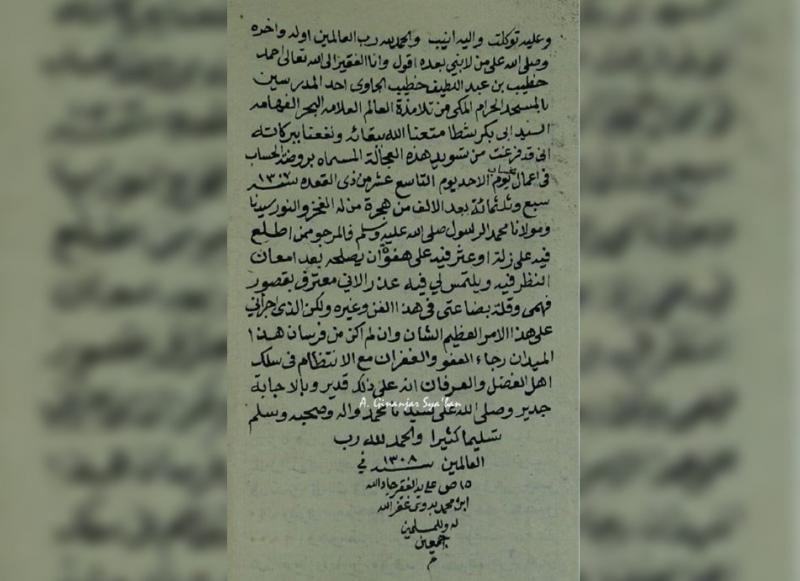 وعليه توكلت واليه انيب والحمد لله رب العالمين اوله واخره
وصلى الله على من لا نبي بعده اقول وانا الفقير الى الله تعالى احمد
خطيب بن عبد اللطيف خطيب الجاوى احد المدرسين
بالمسجد الحرام المكى من تلامذة العالم العلامه البحر الفهامه
السيد ابى بكر شطا متعنا الله ببقائه ونفعنا ببركاته
انى قد فرغت من تسويد هذه العجالة المسماه بروضة الحساب
فى اعمال الاحد يوم التاسع عشر من ذى القعده سنة ١٣٠٧
سبع وثلثمائة بعد الالف من هجرة من له الفخر والنور سيدنا
ومولانا محمد الرسول صلى الله عليه وسلم فالمرجو ممن اطلع
فيه على زلة او عثر فيه على هفوة ان يصلحه بعد امعان
النظر فيه ويلتمس لي فيه عذرا لانى معترف بقصور
فهمى وقلة بضاعتى فى هذا الفن وغيره ولكن الذى جرأنى
على هذا الامر العظيم الشان وان لم اكن من فرسان هذا
الميدان رجاء العفو والغفران مع الانتظام فى سلك
اهل الفضل والعرفان انه على ذلك قدير وبالاجابة
A. Ginanjar Sya'ban
جدير وصلى الله على سيدنا محمد واله وصحبه وسلم
تسليما كثيرا والحمد لله رب
العالمين سنة ١٣٠٨ في
١٥ ص على يد الفقير جاد الله
ابن محمد بدوى غفر الله
له وللمسلمين
اجمعين
م